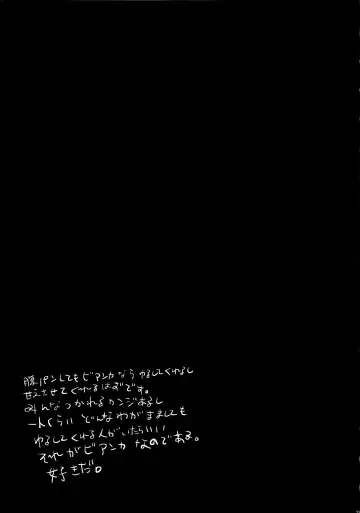 腹パンしてもビアンカならゆるしてくれるし
甘えさせてくれるはずです。
みんなつかれるカンジあるし
一人くらいどんなわがままでも
ゆるしてくれる人がいたらいい
それがビアンカなのである。
好きだ。